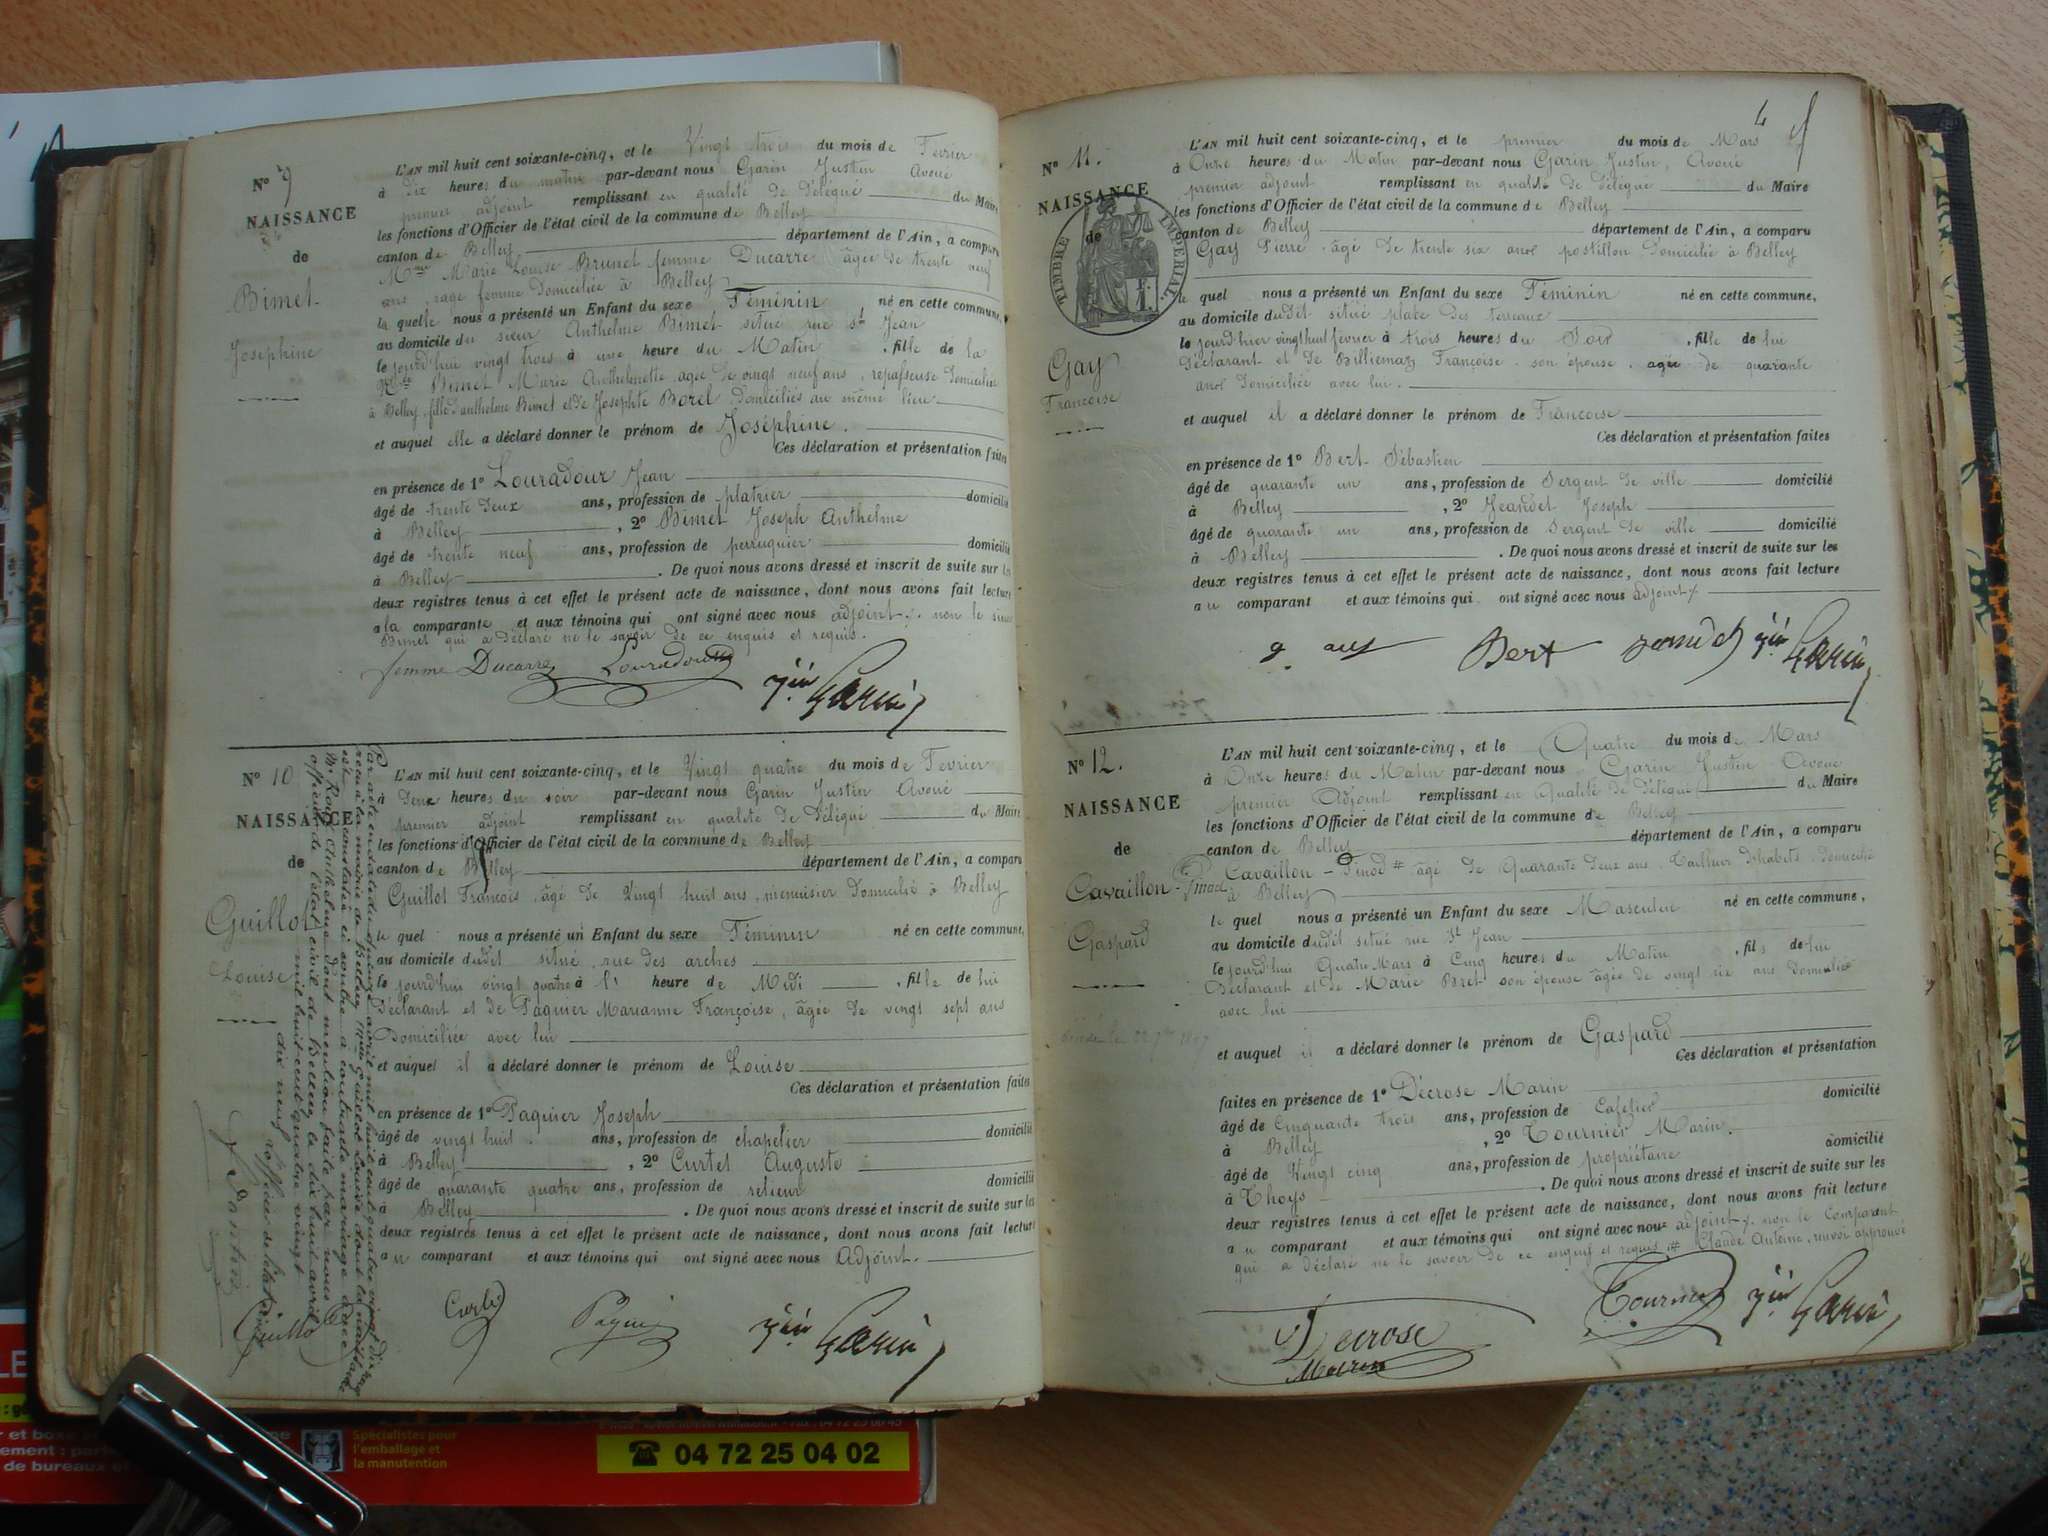 N° 9
NAISSANCE
de
Bimet
Joséphine
L'AN mil huit cent soixante-cinq, et le Vingt trois du mois de Fevrier
à dix heures du matin par-devant nous Garin Justin Avoué
premier adjoint remplissant en qualité de Délégué du Maire
les fonctions d'Officier de l'état civil de la commune de Belley
canton de Belley département de l'Ain, a comparu
Mme Marie Louise Brunet femme Ducarre âgée de trente neuf
ans, sage femme domiciliée à Belley
la quelle nous a présenté un Enfant du sexe Féminin né en cette commune,
au domicile du sieur Anthelme Bimet situé rue St Jean
le jourd'hui vingt trois à une heure du Matin, fille de la
Bimet Marie Anthelmette agée de vingt neuf ans, repasseuse domiciliée
à Belley, fille d'anthelme Bimet et de Josephte Borel domiciliés au même lieu
et auquel elle a déclaré donner le prénom de Joséphine.
Ces déclaration et présentation faites
en présence de 1° Louradour Jean
âgé de trente deux ans, profession de platrier domicilié
à Belley, 2° Bimet Joseph Anthelme
âgé de trente neuf ans, profession de perruquier domicilié
à Belley. De quoi nous avons dressé et inscrit de suite sur les
deux registres tenus à cet effet le présent acte de naissance, dont nous avons fait lecture
a la comparante et aux témoins qui ont signé avec nous adjoint. non le sieur
Bimet qui a déclaré ne le savoir de ce enquis et requis.
femme Ducarre Louradour Jin Garin
N° 10
NAISSANCE
de
Guillot
Louise
L'AN mil huit cent soixante-cinq, et le Vingt quatre du mois de Fevrier
à deux heures du soir par-devant nous Garin Justin Avoué
premier adjoint remplissant en qualité de Délégué du Maire
les fonctions d'Officier de l'état civil de la commune de Belley
canton de Belley département de l'Ain, a comparu
Guillot Francois, âgé de Vingt huit ans, menuisier domicilié à Belley
le quel nous a présenté un Enfant du sexe Féminin né en cette commune,
au domicile dudit situé rue des arches
le jourd'hui vingt quatre à l' heure de Midi, fille de lui
Déclarant et de Paquier Marianne Françoise, âgée de vingt sept ans
Domiciliée avec lui
et auquel il a déclaré donner le prénom de Louise
Ces déclaration et présentation faites
en présence de 1° Paquier Joseph
âgé de vingt huit ans, profession de chapelier domicilié
à Belley, 2° Curtet Auguste
âgé de quarante quatre ans, profession de relieur domicilié
à Belley. De quoi nous avons dressé et inscrit de suite sur les
deux registres tenus à cet effet le présent acte de naissance, dont nous avons fait lecture
au comparant et aux témoins qui ont signé avec nous Adjoint.
Guillot Curtet Paquier Jin Garin
mil huit cent quatre vingt
dix neuf
N° 11.
NAISSANCE
de
TIMBRE IMPERIAL
Gay
Francoise
L'AN mil huit cent soixante-cinq, et le premier du mois de Mars
à Onze heures du Matin par-devant nous Garin Justin, Avoué
premier adjoint remplissant en qualité de Délégué du Maire
les fonctions d'Officier de l'état civil de la commune de Belley
canton de Belley département de l'Ain, a comparu
Gay Pierre âgé de trente six ans postillon domicilié à Belley
le quel nous a présenté un Enfant du sexe Féminin né en cette commune,
au domicile dudit situé place des terreaux
le jourd'hier vingt huit février à trois heures du Soir, fille de lui
déclarant et de Billiemaz Françoise son épouse agée de quarante
ans domiciliée avec lui.
et auquel il a déclaré donner le prénom de Francoise
Ces déclaration et présentation faites
en présence de 1° Bert Sébastien
âgé de quarante un ans, profession de Sergent de ville domicilié
à Belley, 2° Jeandet Joseph
âgé de quarante un ans, profession de Sergent de ville domicilié
à Belley. De quoi nous avons dressé et inscrit de suite sur les
deux registres tenus à cet effet le présent acte de naissance, dont nous avons fait lecture
au comparant et aux témoins qui ont signé avec nous adjoint
Bert Jin Garin
N° 12.
NAISSANCE
de
Cavaillon - Pinod
Gaspard
L'AN mil huit cent soixante-cinq, et le Quatre du mois de Mars
à Onze heures du Matin par-devant nous Garin Justin Avoué
premier Adjoint remplissant en Qualité de Délégué du Maire
les fonctions d'Officier de l'état civil de la commune de Belley
canton de Belley département de l'Ain, a comparu
Cavaillon - Pinod # âgé de Quarante deux ans Tailleur d'habits, domicilié
à Belley
le quel nous a présenté un Enfant du sexe Masculin né en cette commune,
au domicile dudit situé rue St Jean
le jourd'hui Quatre Mars à Cinq heures du Matin, fils de lui
Déclarant et de Marie Bret son épouse âgée de vingt six ans domiciliée
avec lui
et auquel il a déclaré donner le prénom de Gaspard
Ces déclaration et présentation
faites en présence de 1° Décrose Marin
âgé de Cinquante trois ans, profession de Cafetier domicilié
à Belley, 2° Tournier Marin.
âgé de Vingt cinq ans, profession de propriétaire domicilié
à Thoys. De quoi nous avons dressé et inscrit de suite sur les
deux registres tenus à cet effet le présent acte de naissance, dont nous avons fait lecture
au comparant et aux témoins qui ont signé avec nous adjoint. non le Comparant
qui a déclaré ne le savoir de ce enquis et requis # Claude Antoine, renvoi approuvé
Decrose Marin Tournier Jin Garin
Spécialistes pour
l'emballage et
la manutention
☎ 04 72 25 04 02